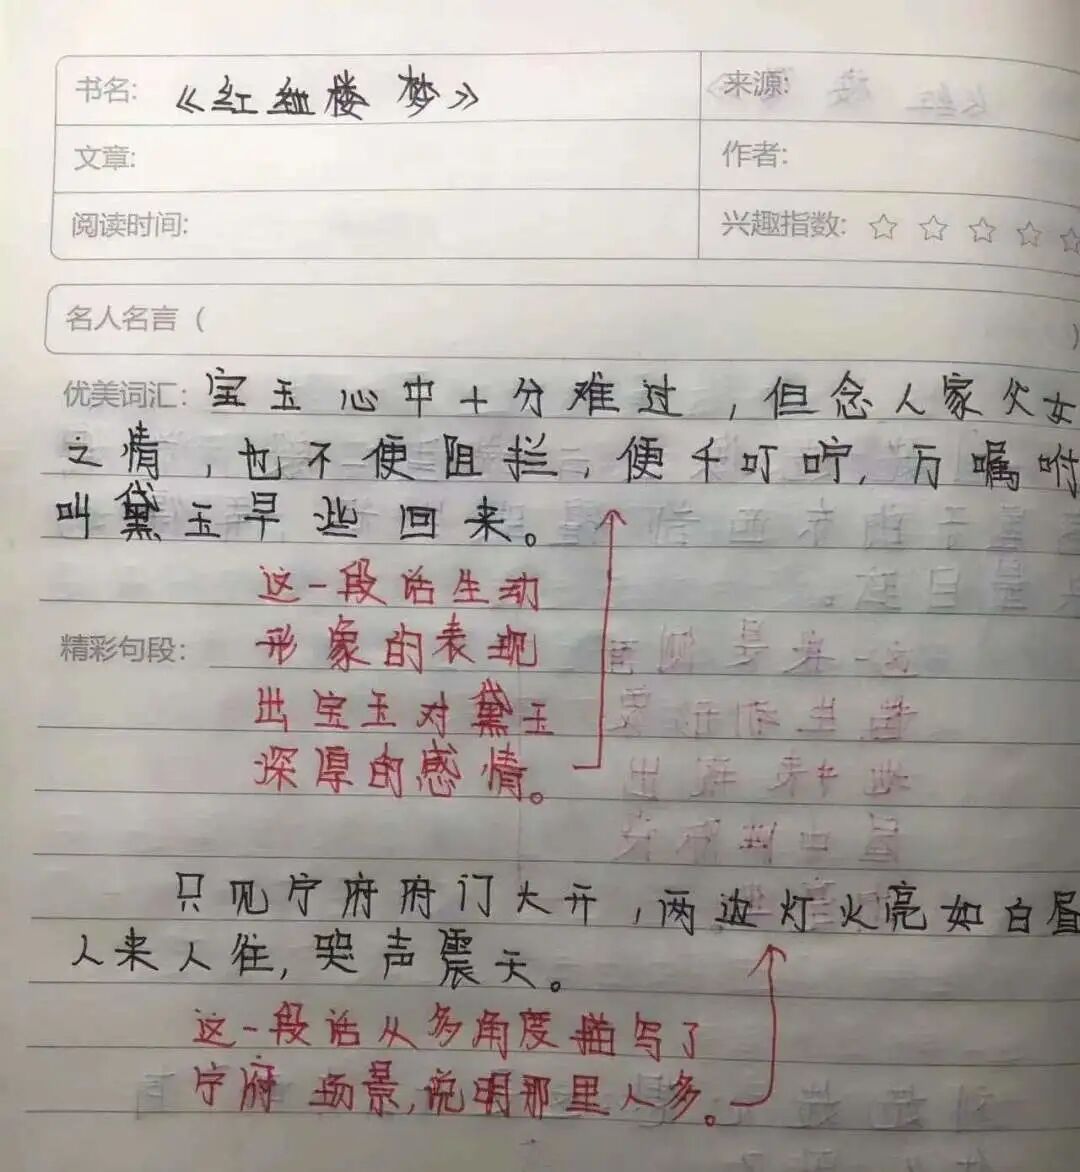 书名: 《红红楼梦》 来源:
文章: 作者:
阅读时间: 兴趣指数: ☆ ☆ ☆ ☆ ☆
名人名言 ( )
优美词汇: 宝玉心中十分难过，但念人家父女
之情，也不便阻拦，便千叮咛，万嘱咐
叫黛玉早些回来。
这一段话生动
精彩句段: 形象的表现
出宝玉对黛玉
深厚的感情。
只见宁府府门大开，两边灯火亮如白昼
人来人往，哭声震天。
这一段话从多角度描写了
宁府场景，说明那里人多。